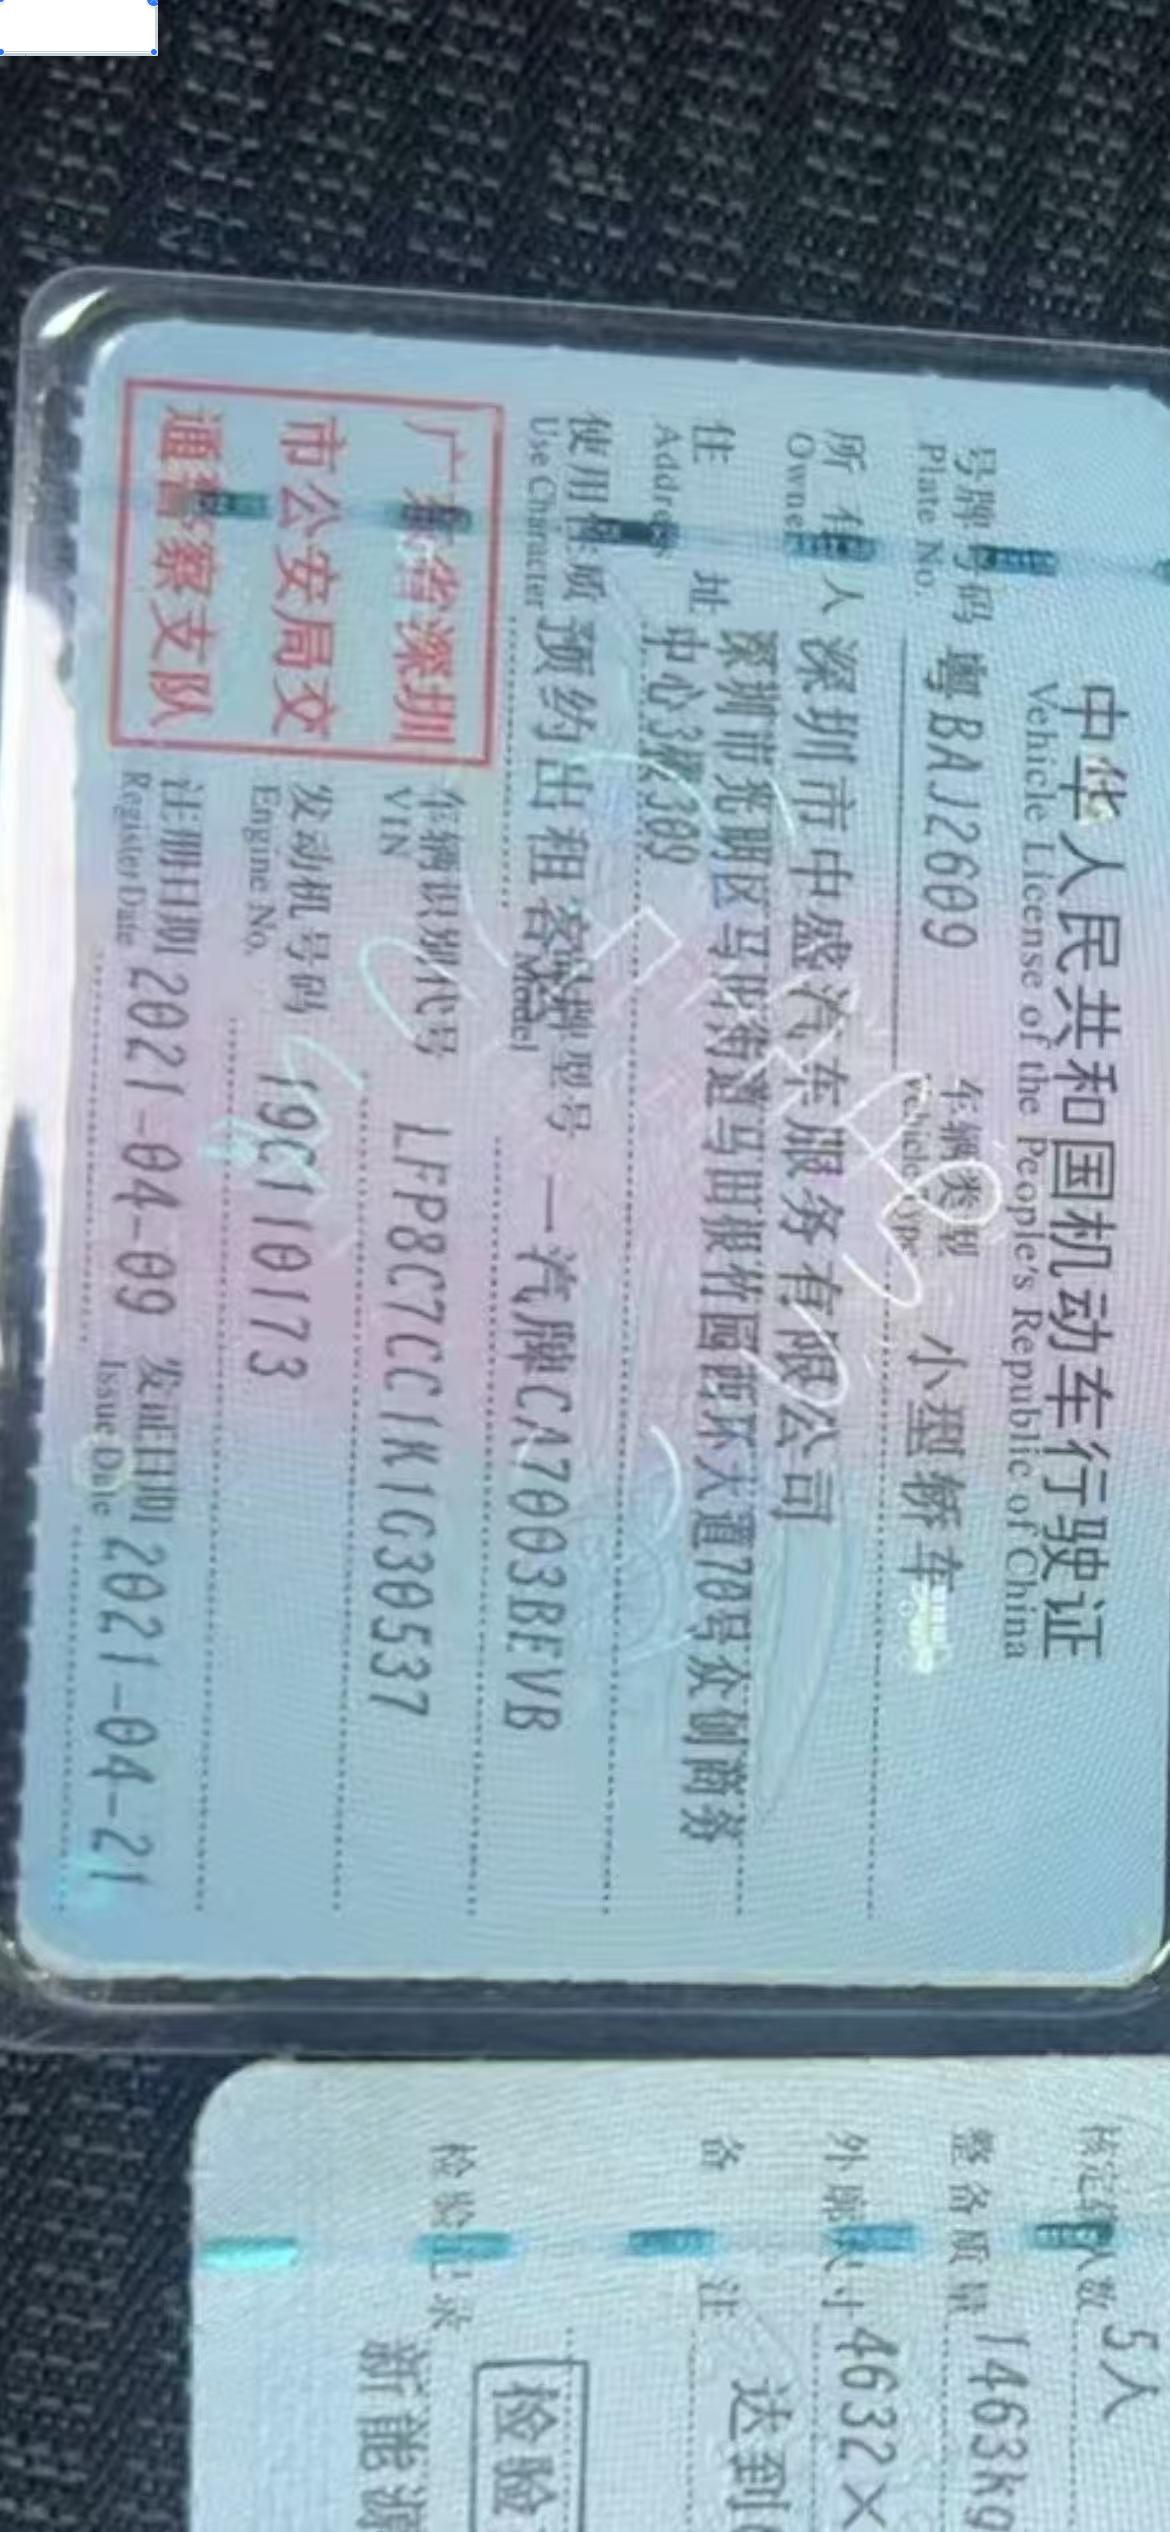 中华人民共和国机动车行驶证
Vehicle License of the People's Republic of China
号牌号码 粤BAJ2609 车辆类型 小型轿车
Plate No. Vehicle Type
所有人 深圳市中盛汽车服务有限公司
Owner
住址 深圳市光明区马田街道马田根竹园西环大道70号众创商务
Address 中心3栋309
使用性质 预约出租客运 品牌型号 一汽牌CA7003BEVB
Use Character Model
广东省深圳
市公安局交
通警察支队
车辆识别代号 LFP8C7CC1K1G30537
VIN
发动机号码 19C110173
Engine No.
注册日期 2021-04-09 发证日期 2021-04-21
Register Date Issue Date
核定载人数 5人
整备质量 1463kg
外廓尺寸 4632×
备注 达到
检验
检验记录
新能源